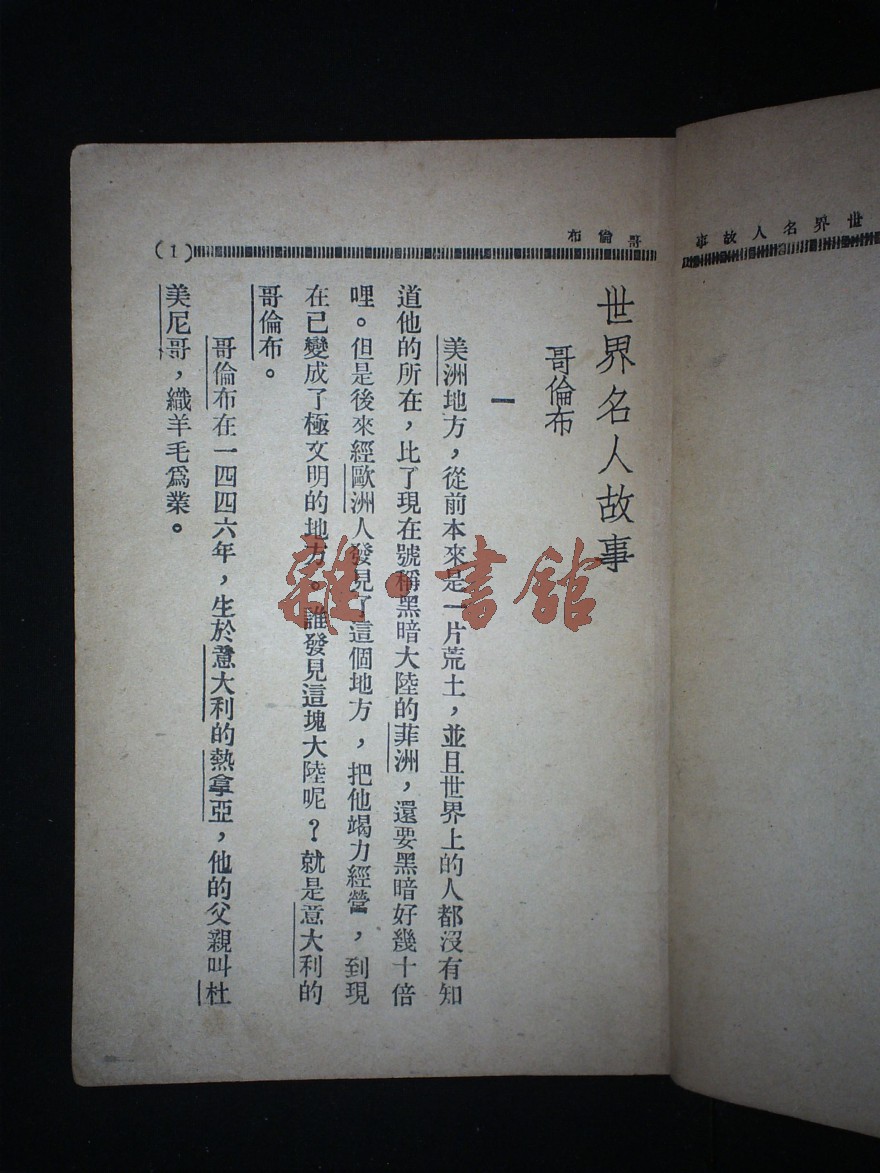 世界名人故事
哥倫布
(1)
世界名人故事
哥倫布
一
美洲地方，從前本來是一片荒土，並且世界上的人都沒有知
道他的所在，比了現在號稱黑暗大陸的菲洲，還要黑暗好幾十倍
哩。但是後來經歐洲人發見了這個地方，把他竭力經營，到現
在已變成了極文明的地方。誰發見這塊大陸呢？就是意大利的
哥倫布。
哥倫布在一四四六年，生於意大利的熱拿亞，他的父親叫杜
美尼哥，織羊毛爲業。
雜·書館